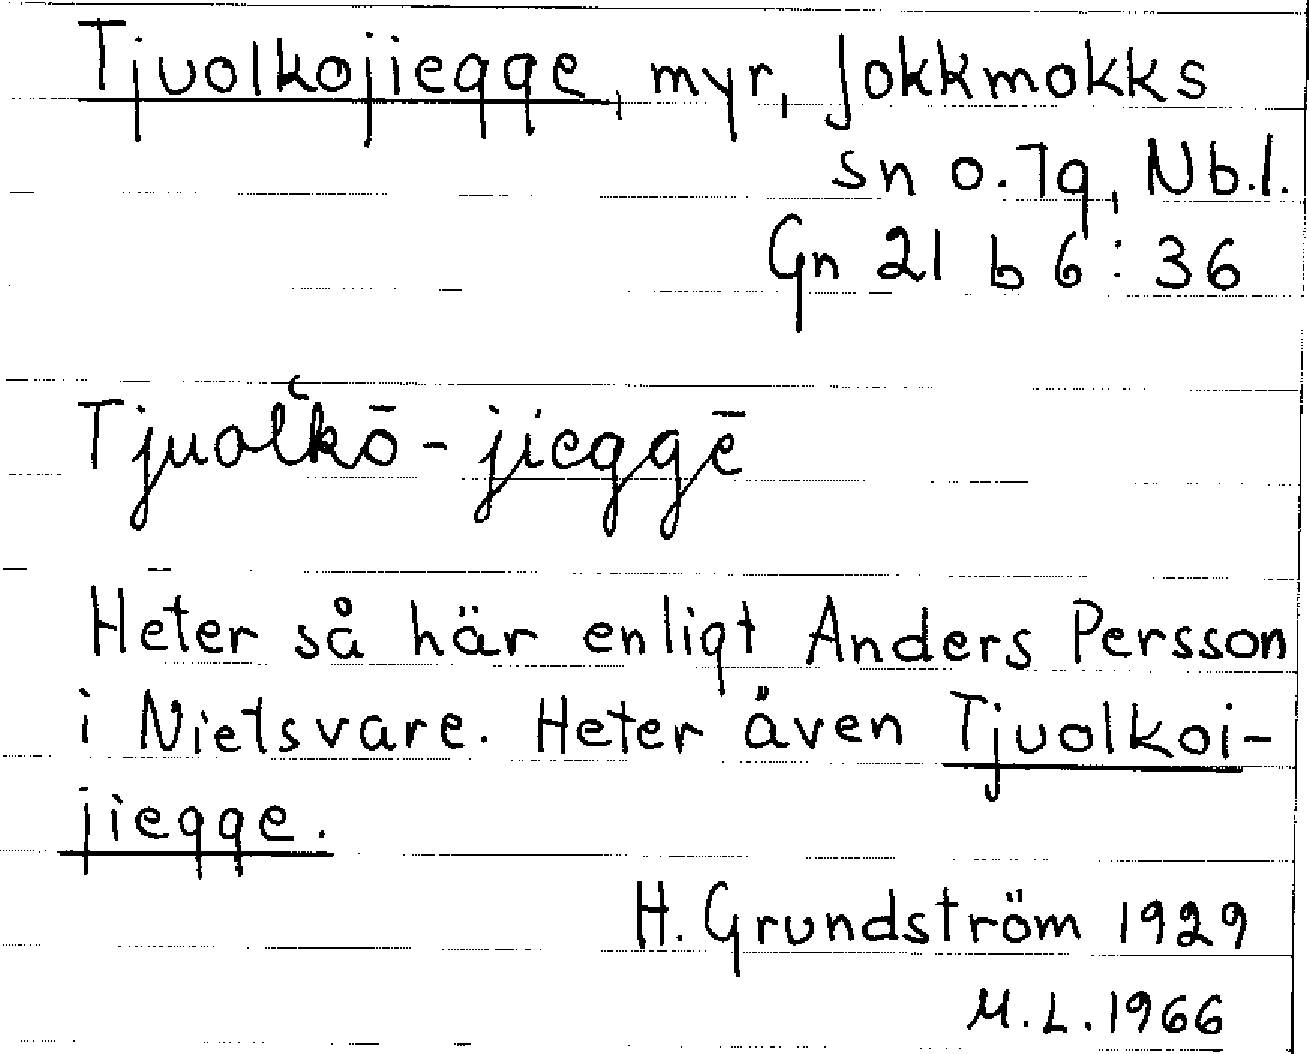 Tjuolkojiegge, myr, Jokkmokks
sn o. Tg, Nb.l.
Gn 21 b 6:36
Tjuol̆kō-jieggē
Heter så här enligt Anders Persson
i Nietsvare. Heter även Tjuolkoi-
jiegge.
H. Grundström 1929
M.L. 1966